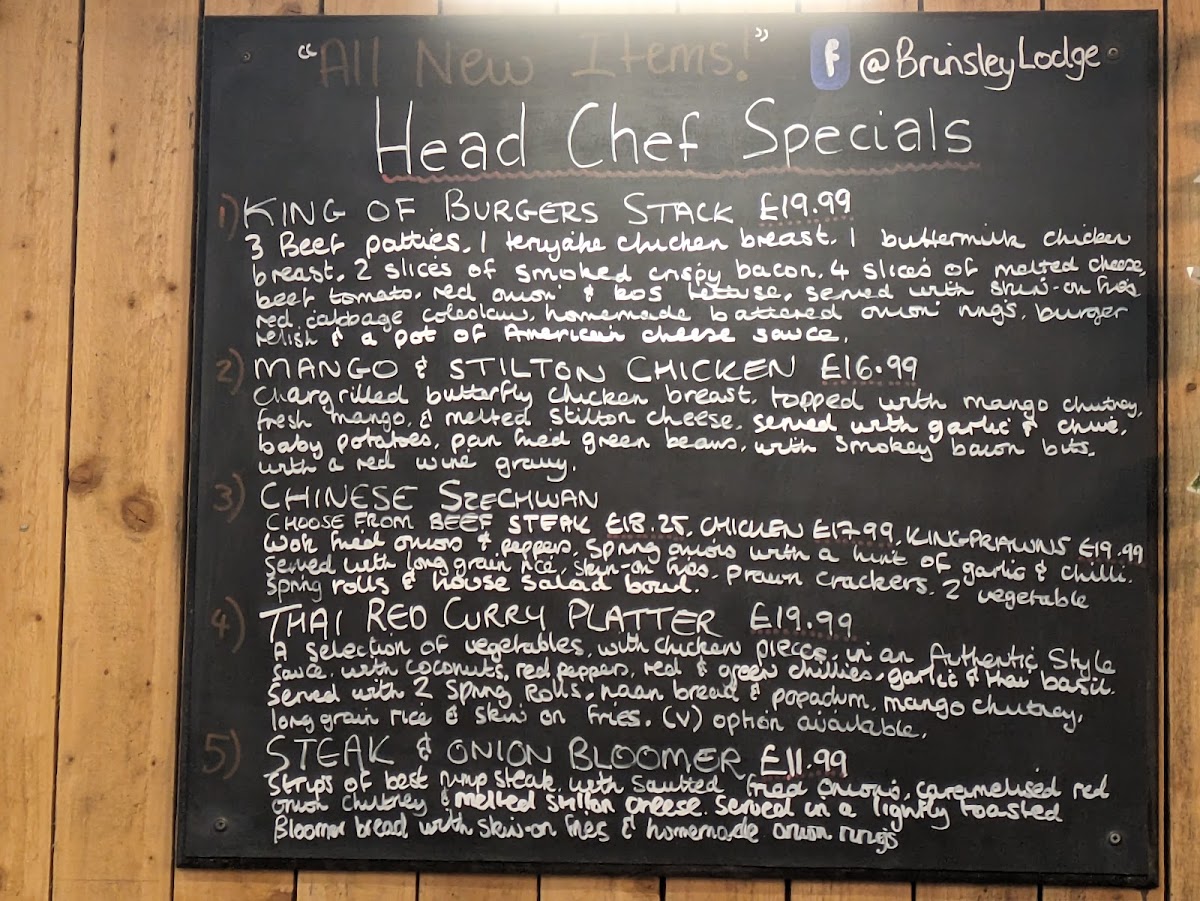 "All New Items!" f @BrinsleyLodge
Head Chef Specials
1) KING OF BURGERS STACK £19.99
3 Beef patties, 1 teriyake chicken breast, 1 buttermilk chicken
breast, 2 slices of smoked crispy bacon, 4 slices of melted cheese,
beef tomato, red onion & kos lettuse, served with skin-on fries
red cabbage coleslaw, homemade battered onion rings, burger
relish & a pot of American cheese sauce.
2) MANGO & STILTON CHICKEN £16.99
Chargrilled butterfly chicken breast, topped with mango chutney,
fresh mango, & melted stilton cheese, served with garlic & chive,
baby potatoes, pan fried green beans, with smokey bacon bits.
with a red wine gravy.
3) CHINESE SZECHWAN
CHOOSE FROM BEEF STEAK £18.25, CHICKEN £17.99, KING PRAWNS £19.99
Wok fried onions & peppers, spring onions with a hint of garlic & chilli.
Served with long grain rice, skin-on fries, prawn crackers, 2 vegetable
spring rolls & house salad bowl.
4) THAI RED CURRY PLATTER £19.99
A selection of vegetables, with chicken pieces, in an Authentic Style
sauce, with coconuts, red peppers, red & green chillies, garlic & thai basil.
Served with 2 Spring Rolls, naan bread & popadum, mango chutney,
long grain rice & skin on fries. (v) option available.
5) STEAK & ONION BLOOMER £11.99
Strips of best rump steak, with sautted fried onions, caramelised red
onion chutney & melted stilton cheese. Served in a lightly toasted
Bloomer bread with skin-on fries & homemade onion rings